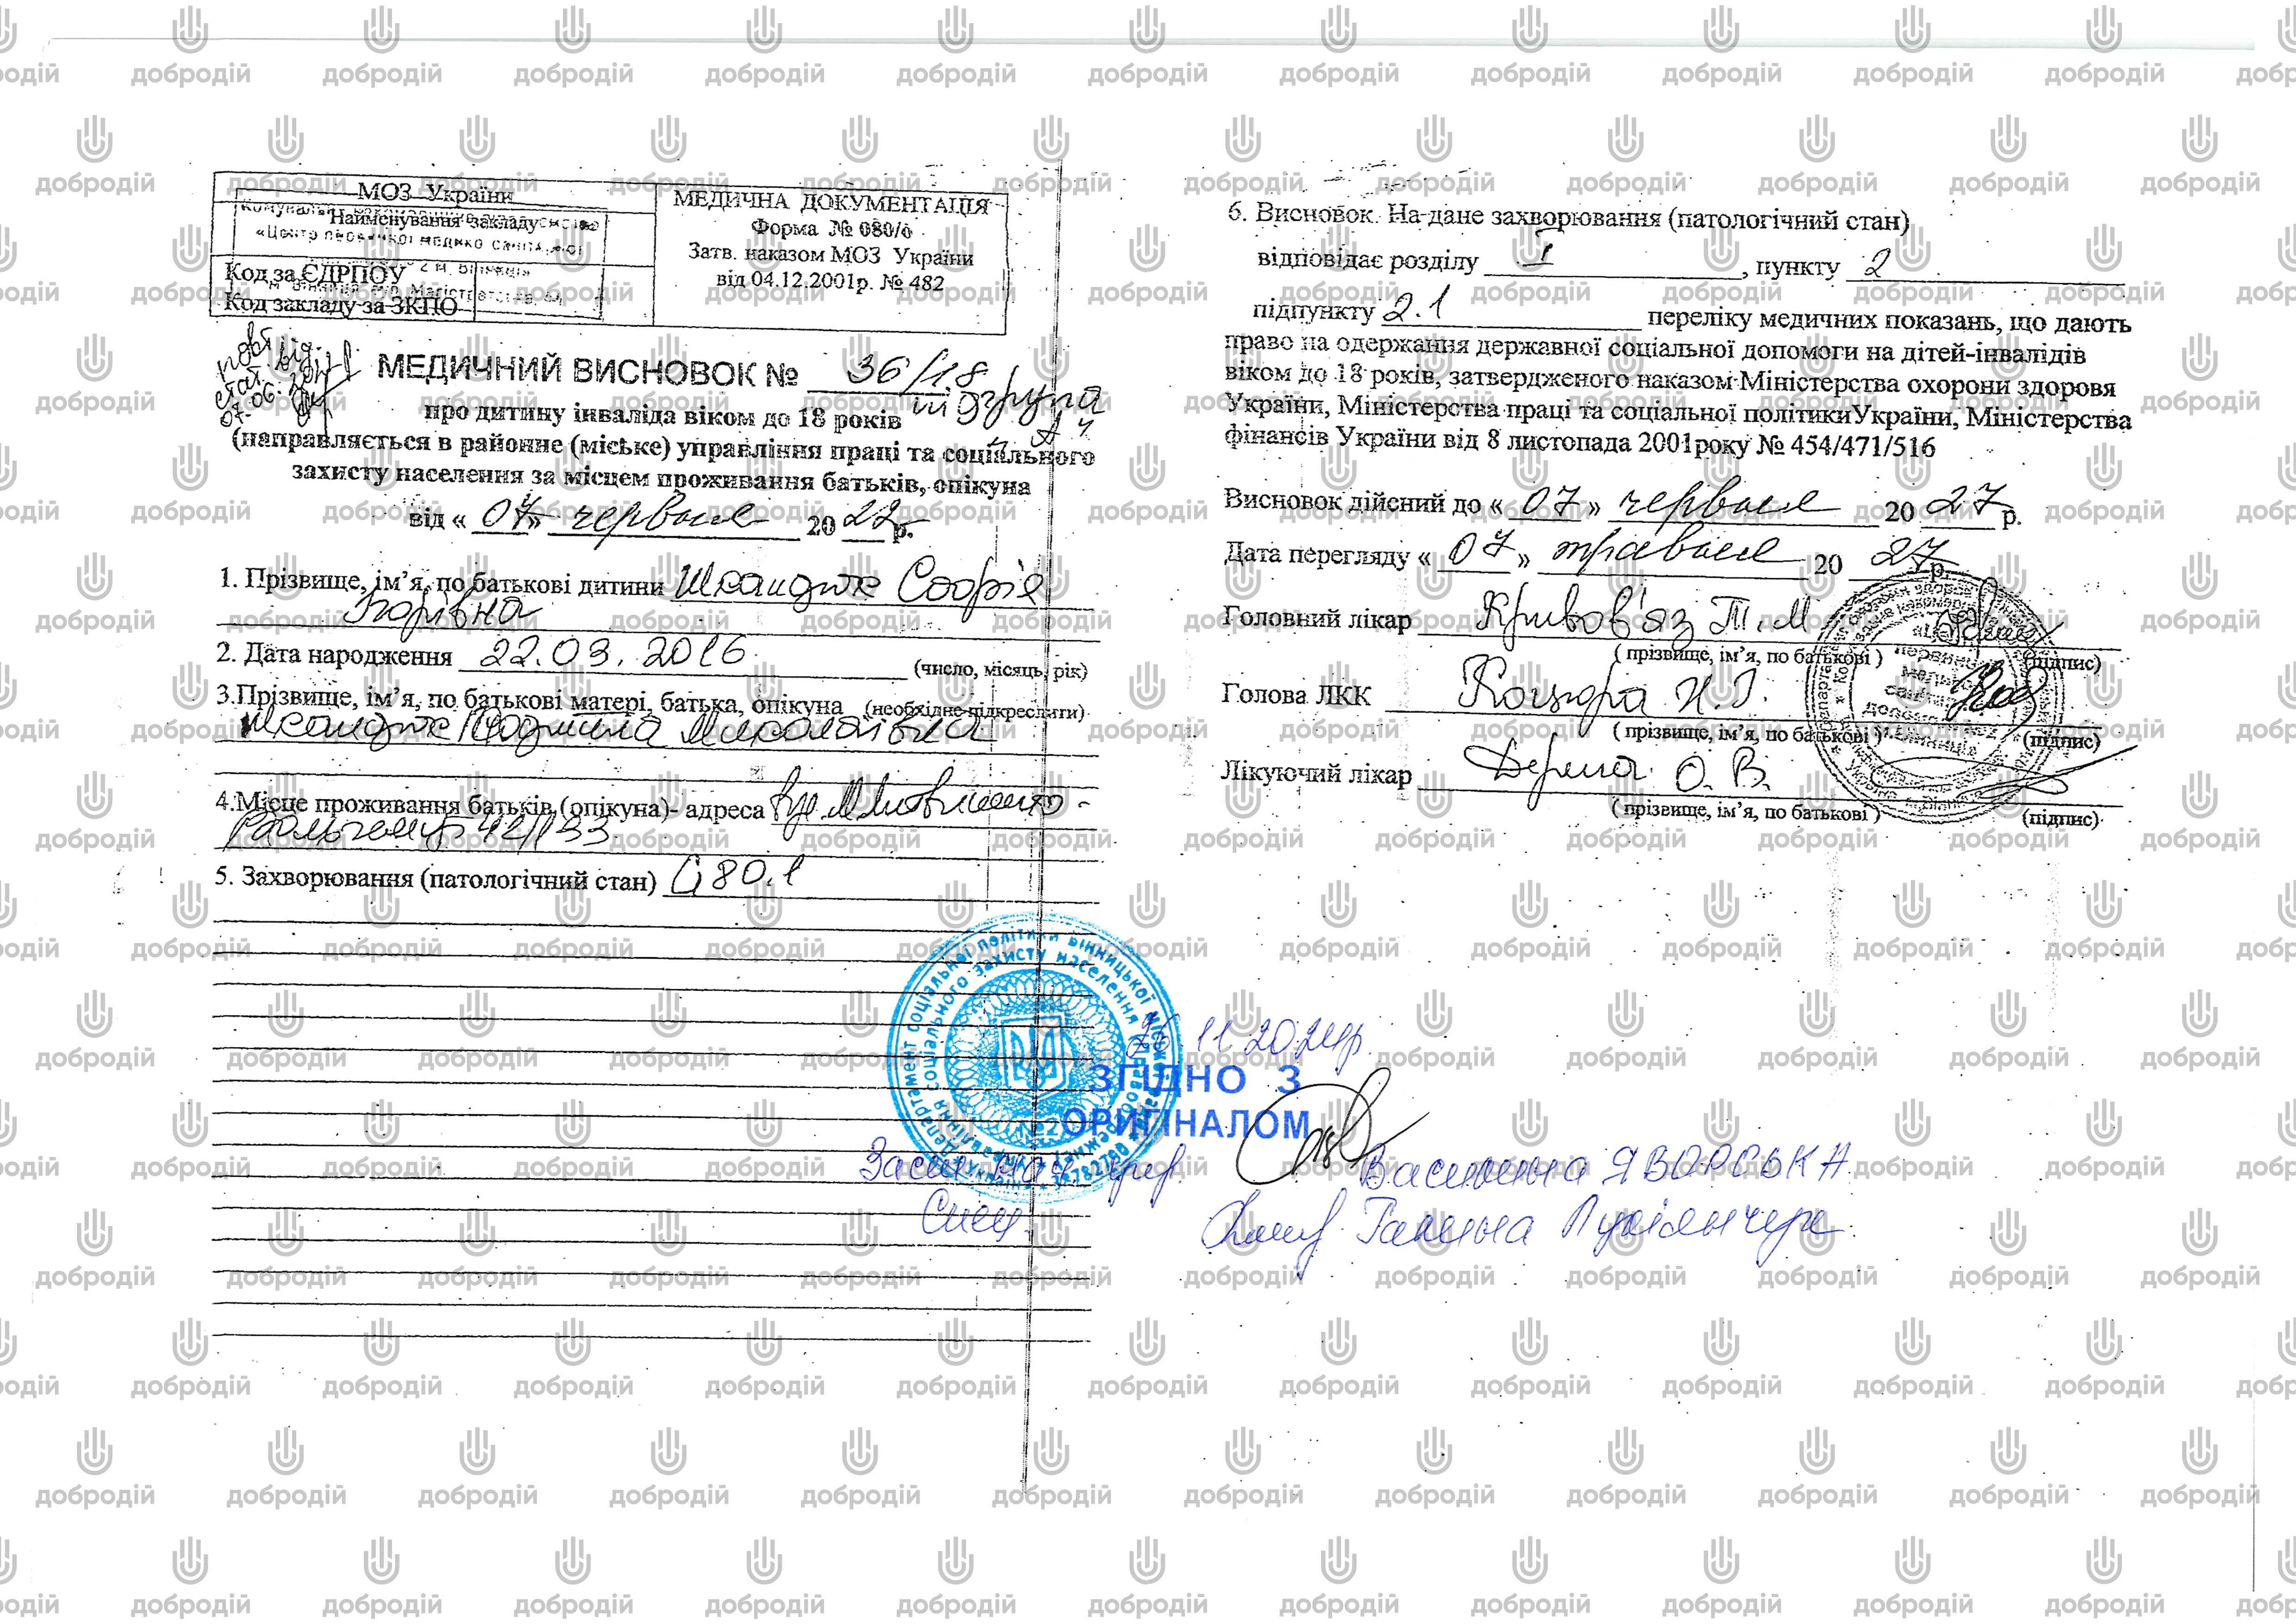 МОЗ України
Найменування закладу
«Центр первинної медико санітарної
№ 2 м. Вінниці»
Код за ЄДРПОУ
Код закладу за ЗКПО
МЕДИЧНА ДОКУМЕНТАЦІЯ
Форма № 080/о
Затв. наказом МОЗ України
від 04.12.2001р. № 482
МЕДИЧНИЙ ВИСНОВОК № 36/18
підгрупа А
про дитину інваліда віком до 18 років
(направляється в районне (міське) управління праці та соціального
захисту населення за місцем проживання батьків, опікуна
від « 07 » червня 20 22 р.
1. Прізвище, ім’я, по батькові дитини Шкандюк Софія
Ігорівна
2. Дата народження 22.03.2016
(число, місяць, рік)
3.Прізвище, ім’я, по батькові матері, батька, опікуна (необхідне підкреслити)
Шкандюк Людмила Миколаївна
4.Місце проживання батьків (опікуна)- адреса вул.
42/133
5. Захворювання (патологічний стан) G80.1
6. Висновок. На дане захворювання (патологічний стан)
відповідає розділу I , пункту 2
підпункту 2.1 переліку медичних показань, що дають
право на одержання державної соціальної допомоги на дітей-інвалідів
віком до 18 років, затвердженого наказом Міністерства охорони здоровя
України, Міністерства праці та соціальної політикиУкраїни, Міністерства
фінансів України від 8 листопада 2001року № 454/471/516
Висновок дійсний до « 07 » червня 20 27 р.
Дата перегляду « 07 » травня 20 27 р.
Головний лікар Кривов'яз Т.М
( прізвище, ім’я, по батькові ) (підпис)
Голова ЛКК
( прізвище, ім’я, по батькові ) (підпис)
Лікуючий лікар О.В.
( прізвище, ім’я, по батькові ) (підпис)
Департамент соціальної політики Вінницької міської ради
соціального захисту населення
26 11 2024р.
ЗГІДНО З
ОРИГІНАЛОМ
Заст нач упр. Василина ЯВОРСЬКА
Спец. Галина
добродій